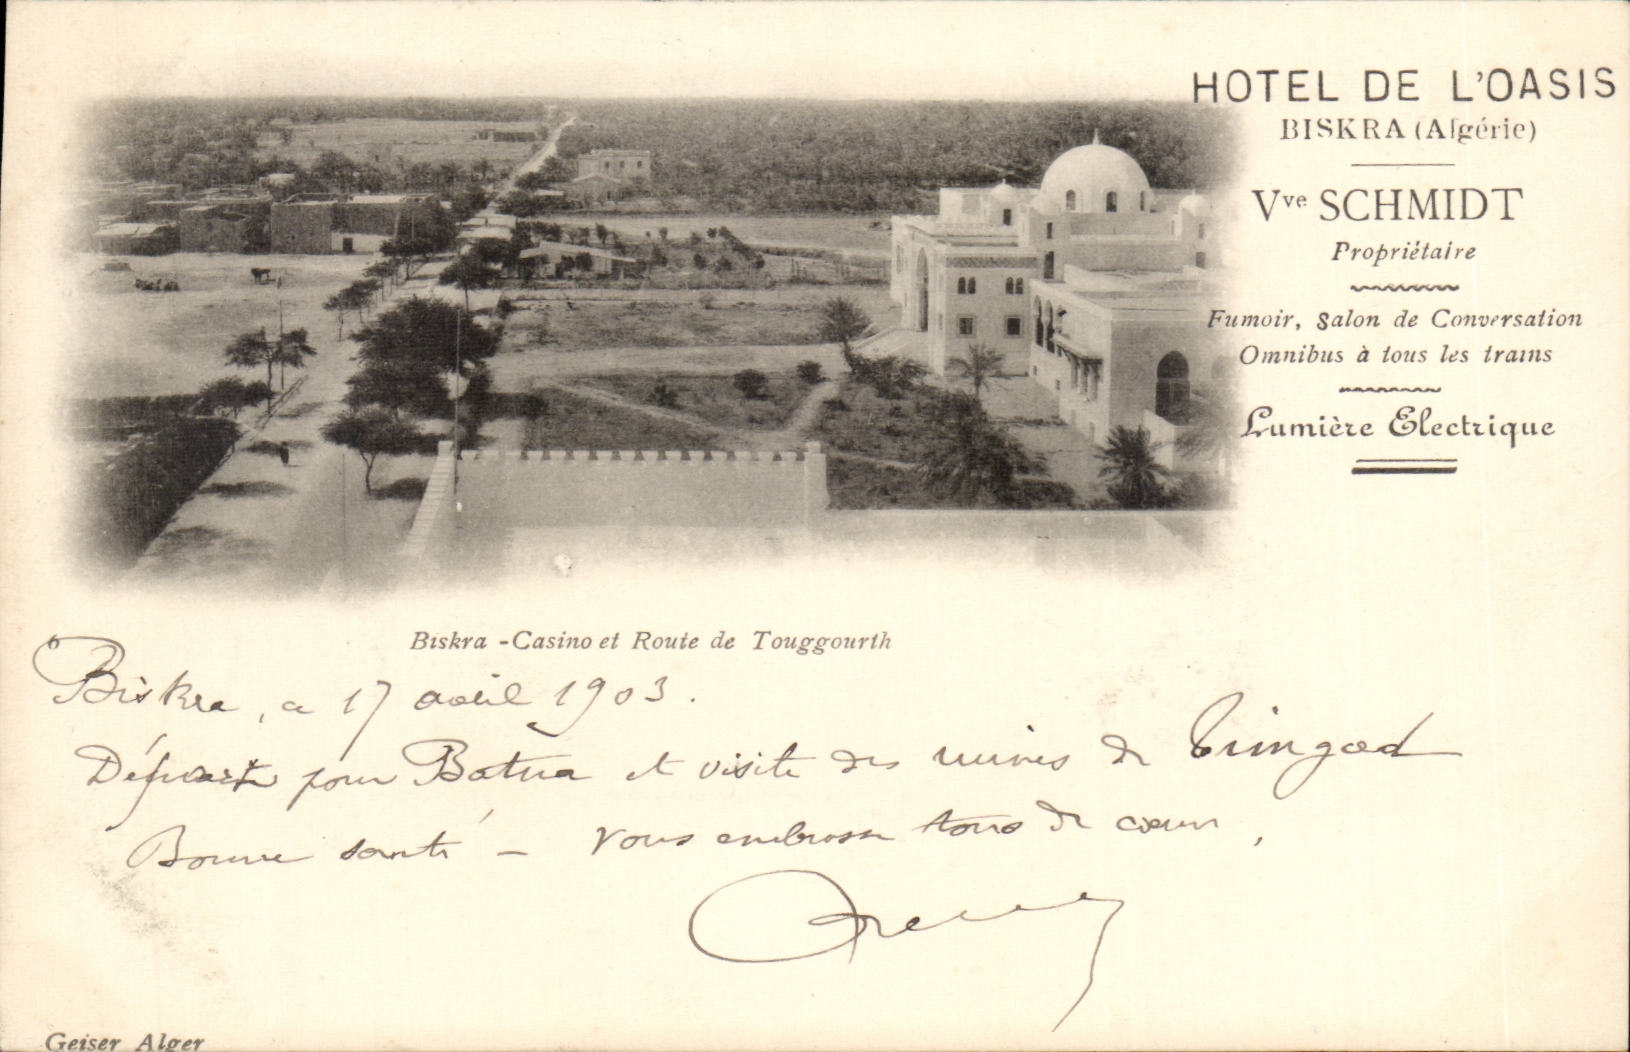 HOTEL DE L'OASIS
BISKRA (Algérie)
Vve SCHMIDT
Propriétaire
Fumoir, Salon de Conversation
Omnibus à tous les trains
Lumière Electrique
Biskra - Casino et Route de Touggourth
Biskra, a 17 avril 1903.
Départ pour Batna et visite des ruines de Timgad
Bonne santé - Vous embrasse tous de cœur,
Geiser Alger